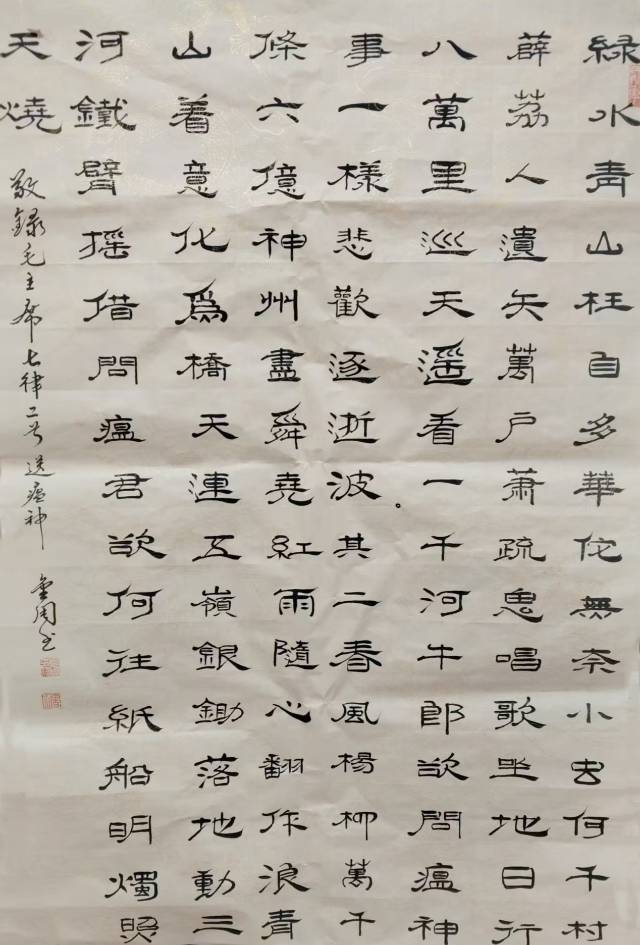 綠水青山枉自多華佗無奈小虫何千村
薜荔人遺矢萬戶蕭疏鬼唱歌坐地日行
八萬里巡天遥看一千河牛郎欲問瘟神
事一樣悲歡逐逝波。其二春風楊柳萬千
條六億神州盡舜堯紅雨隨心翻作浪青
山着意化爲橋天連五嶺銀鋤落地動三
河鐵臂摇借問瘟君欲何往紙船明燭照
天燒
敬録毛主席七律二首送瘟神